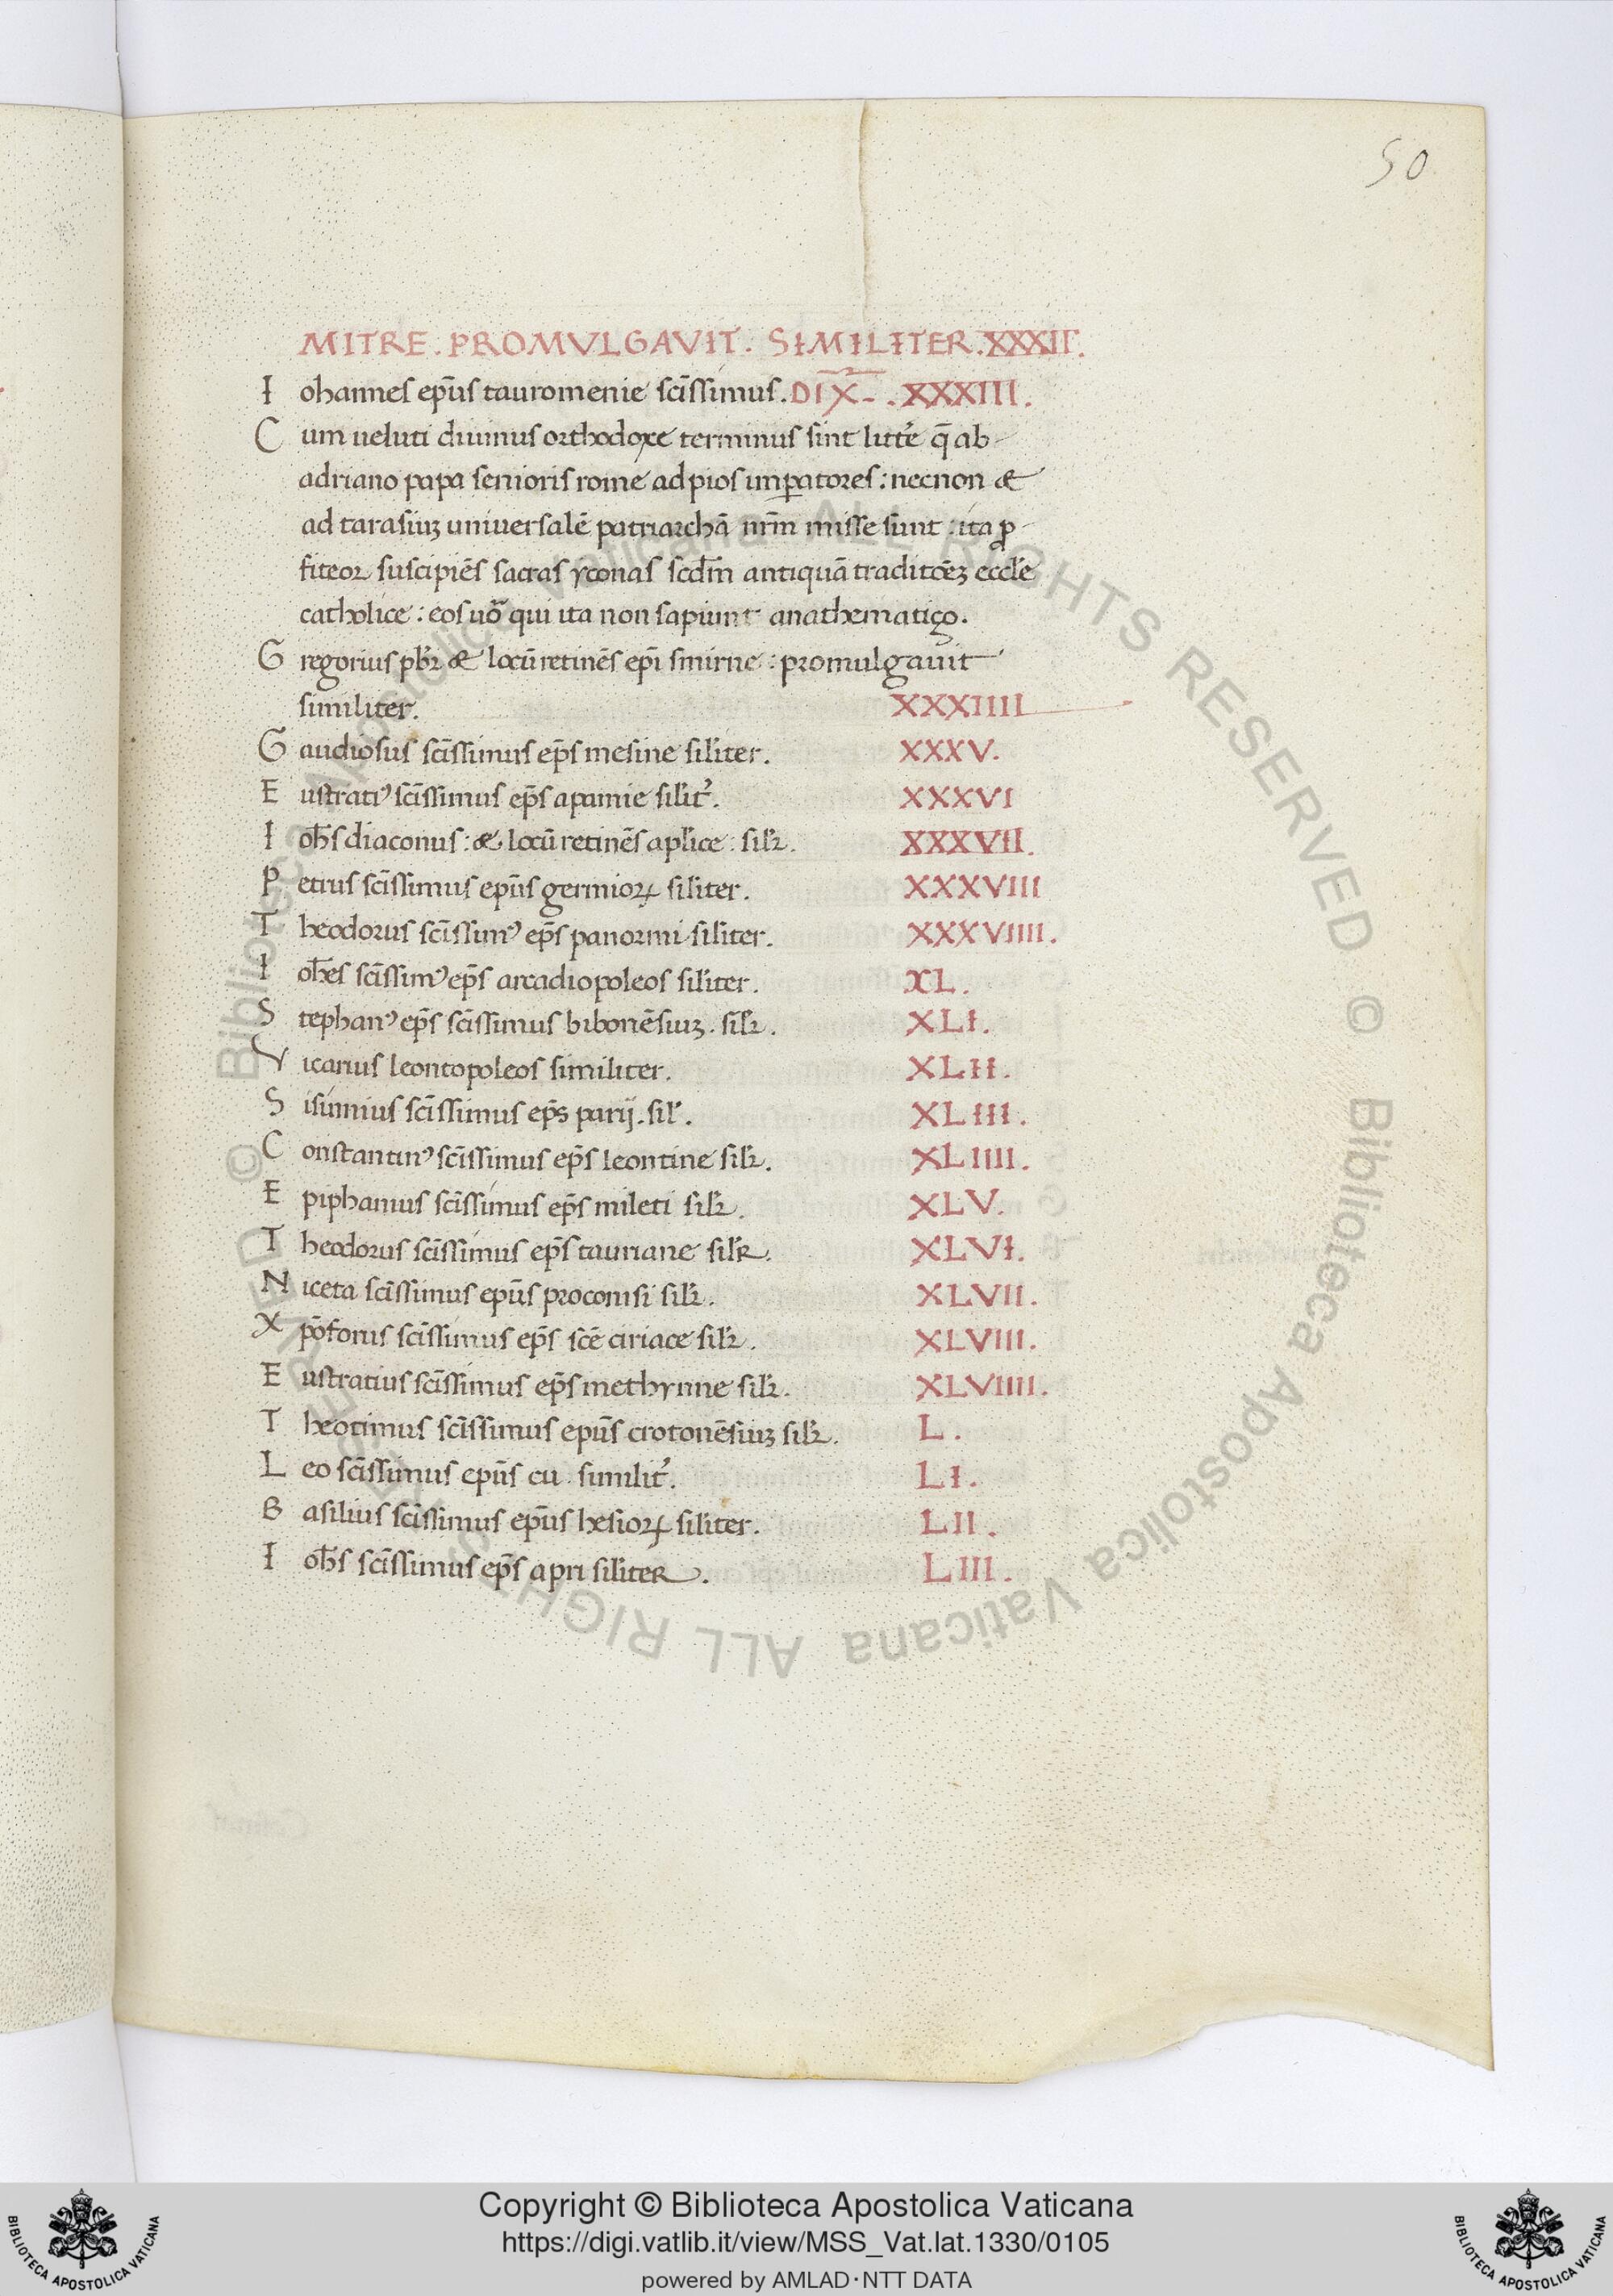 50
MITRE. PROMVLGAVIT. SIMILITER. XXXII.
Iohannes ep̄us tauromenie sc̄issimus. DIX-. XXXIII.
Cum ueluti diuinus orthodoxe terminus sint litte᷒ q̄ ab
adriano papa senioris rome ad pios imꝑatores: necnon &
ad tarasiuꝫ uniuersalē patriarchā nr̄m misse sunt: ita ꝓ
fiteor suscipiēs sacras yconas scd̄m antiquā traditōeꝫ eccl̄e
catholice: eos uō qui ita non sapiunt anathematiço.
Gregorius pb̄r & locū retinēs ep̄i smirne: promulgauit
similiter. XXXIIII
Gaudiosus sc̄issimus ep̄s mesine sil̄iter. XXXV.
Eustratiꝰ sc̄issimus ep̄s apamie sil̄it᷒. XXXVI
Ioh̄s diaconus: & locū retinēs apl̄ice: sil̄r. XXXVII.
Petrus sc̄issimus ep̄us germioꝝ sil̄iter. XXXVIII
Theodorus sc̄issimꝰ ep̄s panormi sil̄iter. XXXVIIII.
Ioh̄es sc̄issimꝰ ep̄s arcadiopoleos sil̄iter. XL.
Stephanꝰ ep̄s sc̄issimus bibonēsiuꝫ. sil̄r. XLI.
Vicarius leontopoleos similiter. XLII.
Sisinnius sc̄issimus ep̄s parij. sil̄. XLIII.
Constantinꝰ sc̄issimus ep̄s leontine sil̄r. XLIIII.
Epiphanius sc̄issimus ep̄s mileti sil̄r. XLV.
Theodorus sc̄issimus ep̄s tauriane sil̄R. XLVI.
Niceta sc̄issimus ep̄us proconisi sil̄r. XLVII.
Xp̄oforus sc̄issimus ep̄s sc̄e ciriace sil̄r. XLVIII.
Eustratius sc̄issimus ep̄s methynne sil̄r. XLVIIII.
Theotimus sc̄issimus ep̄us crotonēsiuꝫ sil̄r. L.
Leo sc̄issimus ep̄us cu. similit᷒. LI.
Basilius sc̄issimus ep̄us hesioꝝ sil̄iter. LII.
Ioh̄s sc̄issimus ep̄s apri sil̄iteR. LIII.
© Biblioteca Apostolica Vaticana ALL RIGHTS RESERVED © Biblioteca Apostolica Vaticana ALL RIGHTS RESERVED
Copyright © Biblioteca Apostolica Vaticana
https://digi.vatlib.it/view/MSS_Vat.lat.1330/0105
powered by AMLAD·NTT DATA
BIBLIOTECA APOSTOLICA VATICANA
BIBLIOTECA APOSTOLICA VATICANA